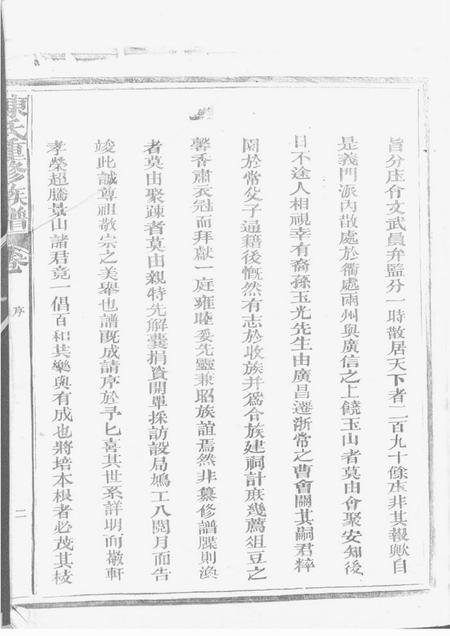 旨分庄僉文武員弁監分一時散居天下者二百九十餘庄非其報歟自
是義門派內散處於衢處兩州與廣信之上饒玉山者莫由會聚安知後
日不途人相視幸有裔孫玉光先生由廣昌遷浙常之曹會關其嗣君粹
園於常父子通籍後慨然有志於收族并為合族建祠計庶幾薦俎豆之
馨香肅衣冠而拜獻一庭雍睦妥先靈兼昭族誼焉然非纂修譜牒則渙
者莫由聚疎者莫由親特先解囊捐資開單採訪設局鳩工八閱月而告
竣此誠尊祖敬宗之美舉也譜既成請序於予匕喜其世系詳明而敬軒
孝榮超騰景山諸君竟一倡百和其樂與有成也將培本根者必茂其枝
陳氏重修族譜 卷 序 二